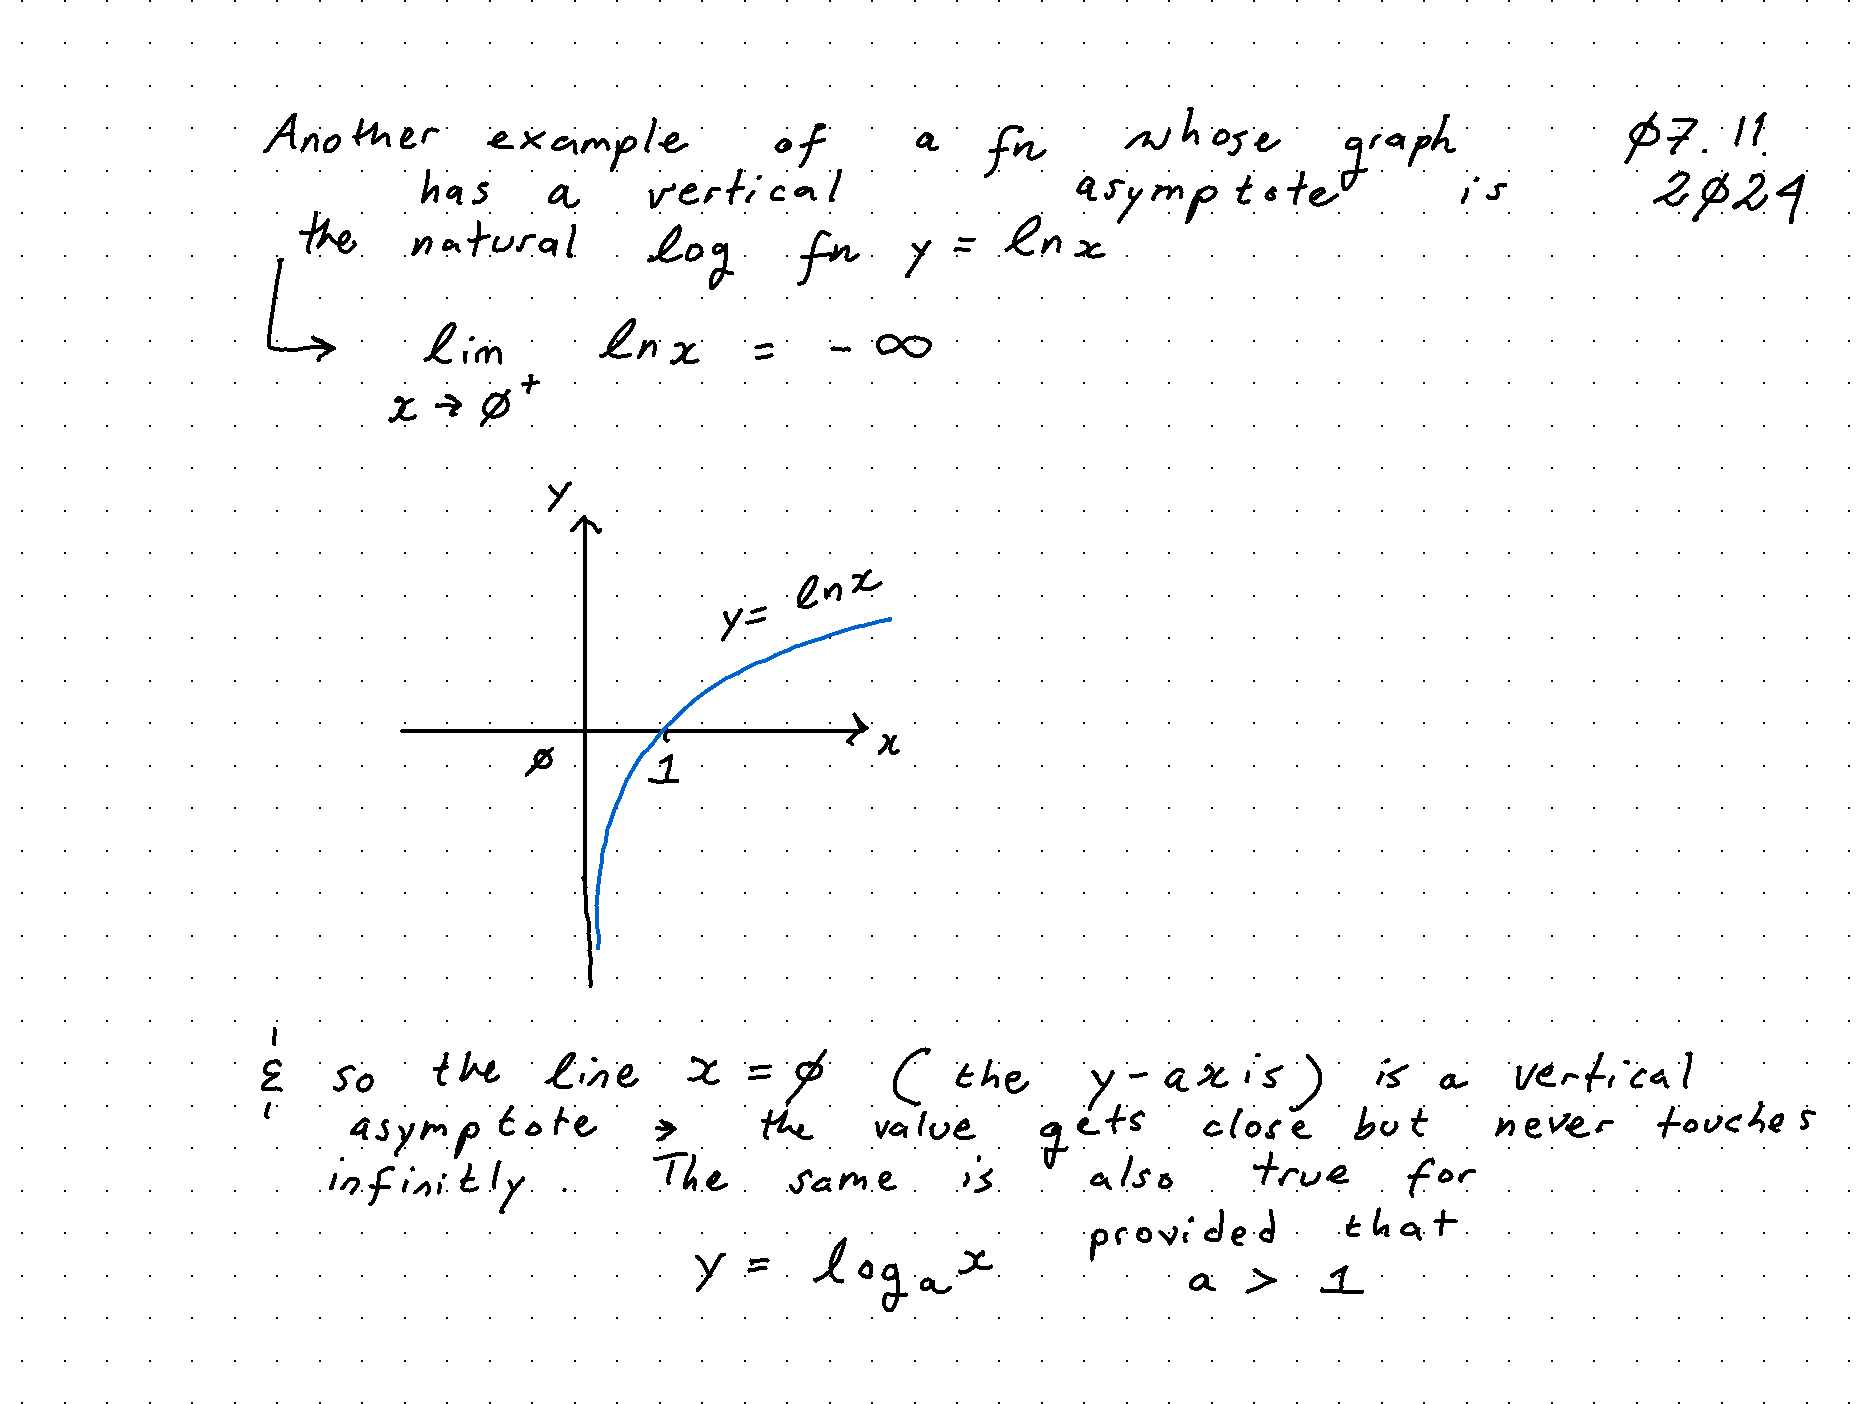 Another example of a fn whose graph
has a vertical asymptote is
the natural log fn y = ln x
07.11.
2024
lim ln x = - ∞
x → 0⁺
y
y = ln x
x
0
1
& so the line x = 0 (the y-axis) is a vertical
asymptote → the value gets close but never touches
infinitly. The same is also true for
y = logₐ x provided that
a > 1